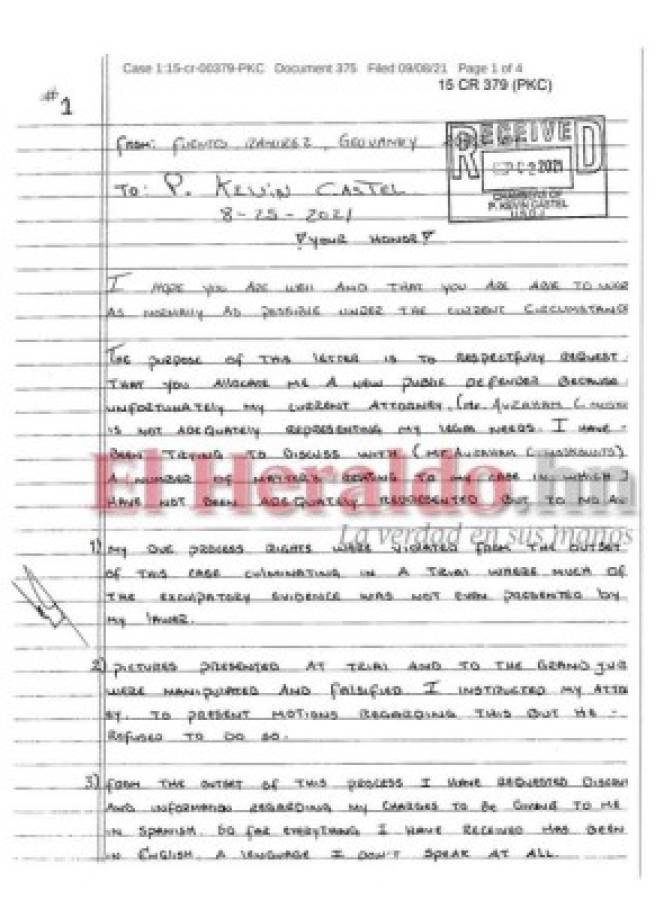 Case 1:15-cr-00379-PKC Document 375 Filed 09/08/21 Page 1 of 4
15 CR 379 (PKC)
#1
FROM: FUENTES RAMIREZ, GEOVANNY
RECEIVED
2021
CHAMBERS OF
P. KEVIN CASTEL
U.S.D.J.
TO: P. KEVIN CASTEL
8-25-2021
YOUR HONOR
I HOPE YOU ARE WELL AND THAT YOU ARE ABLE TO WOR
AS NORMALLY AS POSSIBLE UNDER THE CURRENT CIRCUMSTANC
THE PURPOSE OF THIS LETTER IS TO RESPECTFULLY REQUEST
THAT YOU ALLOCATE ME A NEW PUBLIC DEFENDER BECAUSE
UNFORTUNATELY MY CURRENT ATTORNEY, (MR. AVRAHAM
IS NOT ADEQUATELY REPRESENTING MY LEGAL NEEDS. I HAVE
BEEN TRYING TO DISCUSS WITH (MR AVRAHAM
A NUMBER OF MATTERS RELATING TO MY CASE IN WHICH I
HAVE NOT BEEN ADEQUATELY REPRESENTED BUT TO NO AV
El Heraldo.hn
La verdad en sus manos
1) MY DUE PROCESS RIGHTS WERE VIOLATED FROM THE OUTSET
OF THIS CASE CULMINATING IN A TRIAL WHERE MUCH OF
THE EXCULPATORY EVIDENCE WAS NOT EVEN PRESENTED BY
MY LAWER.
2) PICTURES PRESENTED AT TRIAL AND TO THE GRAND JUR
WERE MANIPULATED AND FALSIFIED I INSTRUCTED MY ATTO
EY. TO PRESENT MOTIONS REGARDING THIS BUT HE -
REFUSED TO DO SO.
3) FROM THE OUTSET OF THIS PROCESS I HAVE REQUESTED DISCOV
AND INFORMATION REGARDING MY CHARGES TO BE GIVING TO ME
IN SPANISH. SO FAR EVERYTHING I HAVE RECEIVED HAS BEEN
IN ENGLISH, A LANGUAGE I DON'T SPEAK AT ALL.